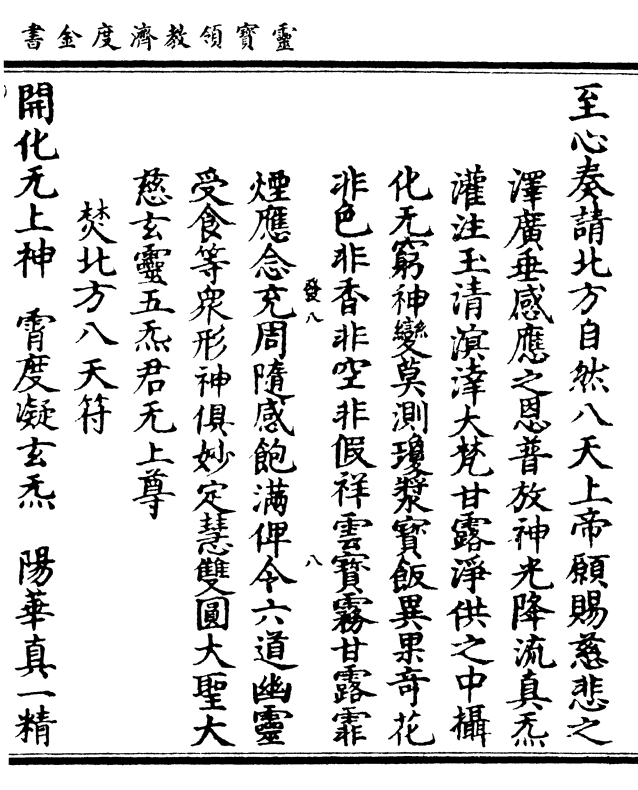 靈寶領教濟度金書
至心奏請北方自然八天上帝願賜慈悲之
澤廣垂感應之恩普放神光降流真炁
灌注玉清溟涬大梵甘露淨供之中攝
化无窮神變莫測瓊漿寶飯異果奇花
非色非香非空非假祥雲寶霧甘露霏
發八 八
煙應念充周隨感飽滿俾令六道幽靈
受食等衆形神俱妙定慧雙圓大聖大
慈玄靈五炁君无上尊
焚北方八天符
開化无上神 霄度凝玄炁 陽華真一精